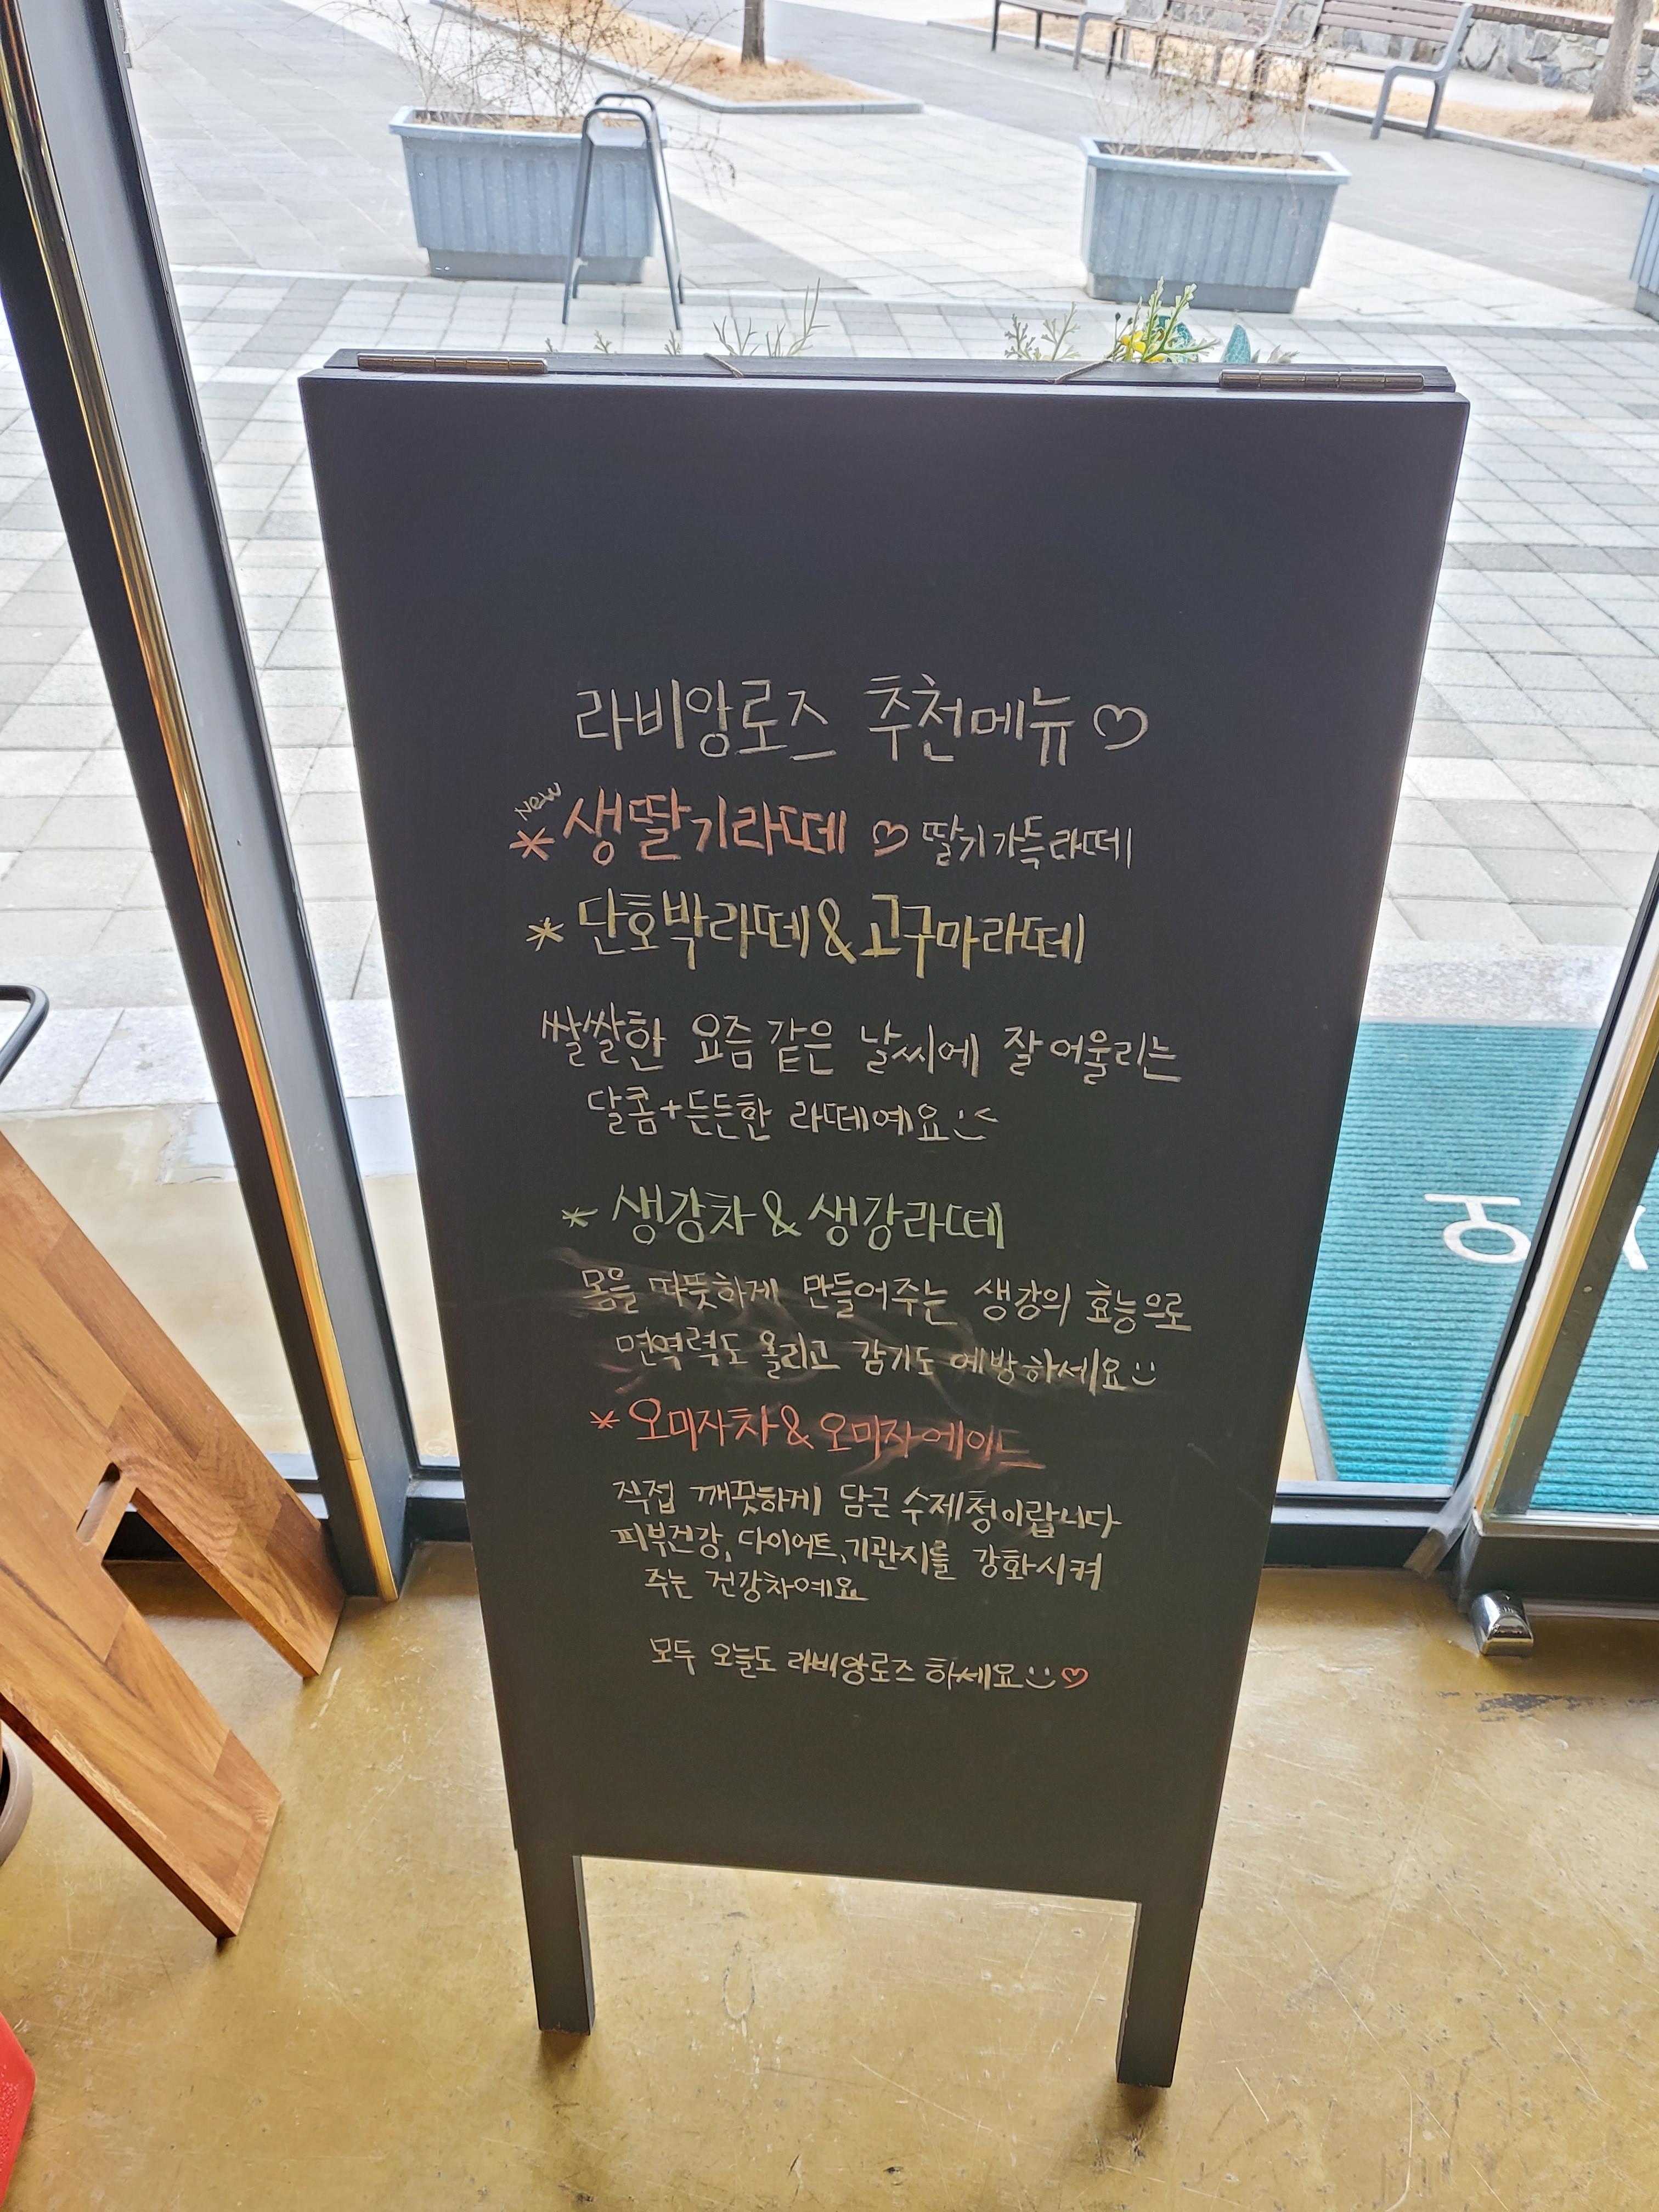 라비앙로즈 추천메뉴♡
New
*생딸기라떼 ♡ 딸기가득라떼
* 단호박라떼&고구마라떼
쌀쌀한 요즘같은 날씨에 잘어울리는
달콤+든든한 라떼예요
* 생강차 & 생강라떼
몸을 따뜻하게 만들어주는 생강의 효능으로
면역력도 올리고 감기도 예방하세요
* 오미자차& 오미자에이드
직접 깨끗하게 담근 수제청이랍니다
피부건강, 다이어트, 기관지를 강화시켜
주는 건강차예요
모두 오늘도 라비앙로즈 하세요♡